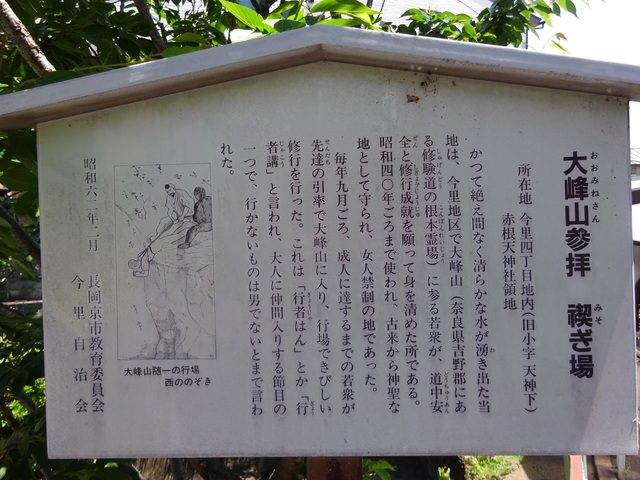 大峰山参拝 禊ぎ場
所在地 今里四丁目地内(旧小字 天神下)
赤根天神社領地
かつて絶え間なく清らかな水が湧き出た当
地は、今里地区で大峰山(奈良県吉野郡にあ
る修験道の根本霊場)に参る若衆が、道中安
全と修行成就を願って身を清めた所である。
昭和四〇年ごろまで使われ、古来から神聖な
地として守られ、女人禁制の地であった。
毎年九月ごろ、成人に達するまでの若衆が
先達の引率で大峰山に入り、行場できびしい
修行を行った。これは「行者はん」とか「行
者講」と言われ、大人に仲間入りする節目の
一つで、行かないものは男でないとまで言わ
れた。
大峰山随一の行場
西ののぞき
昭和六二年二月 長岡京市教育委員会
今里自治会